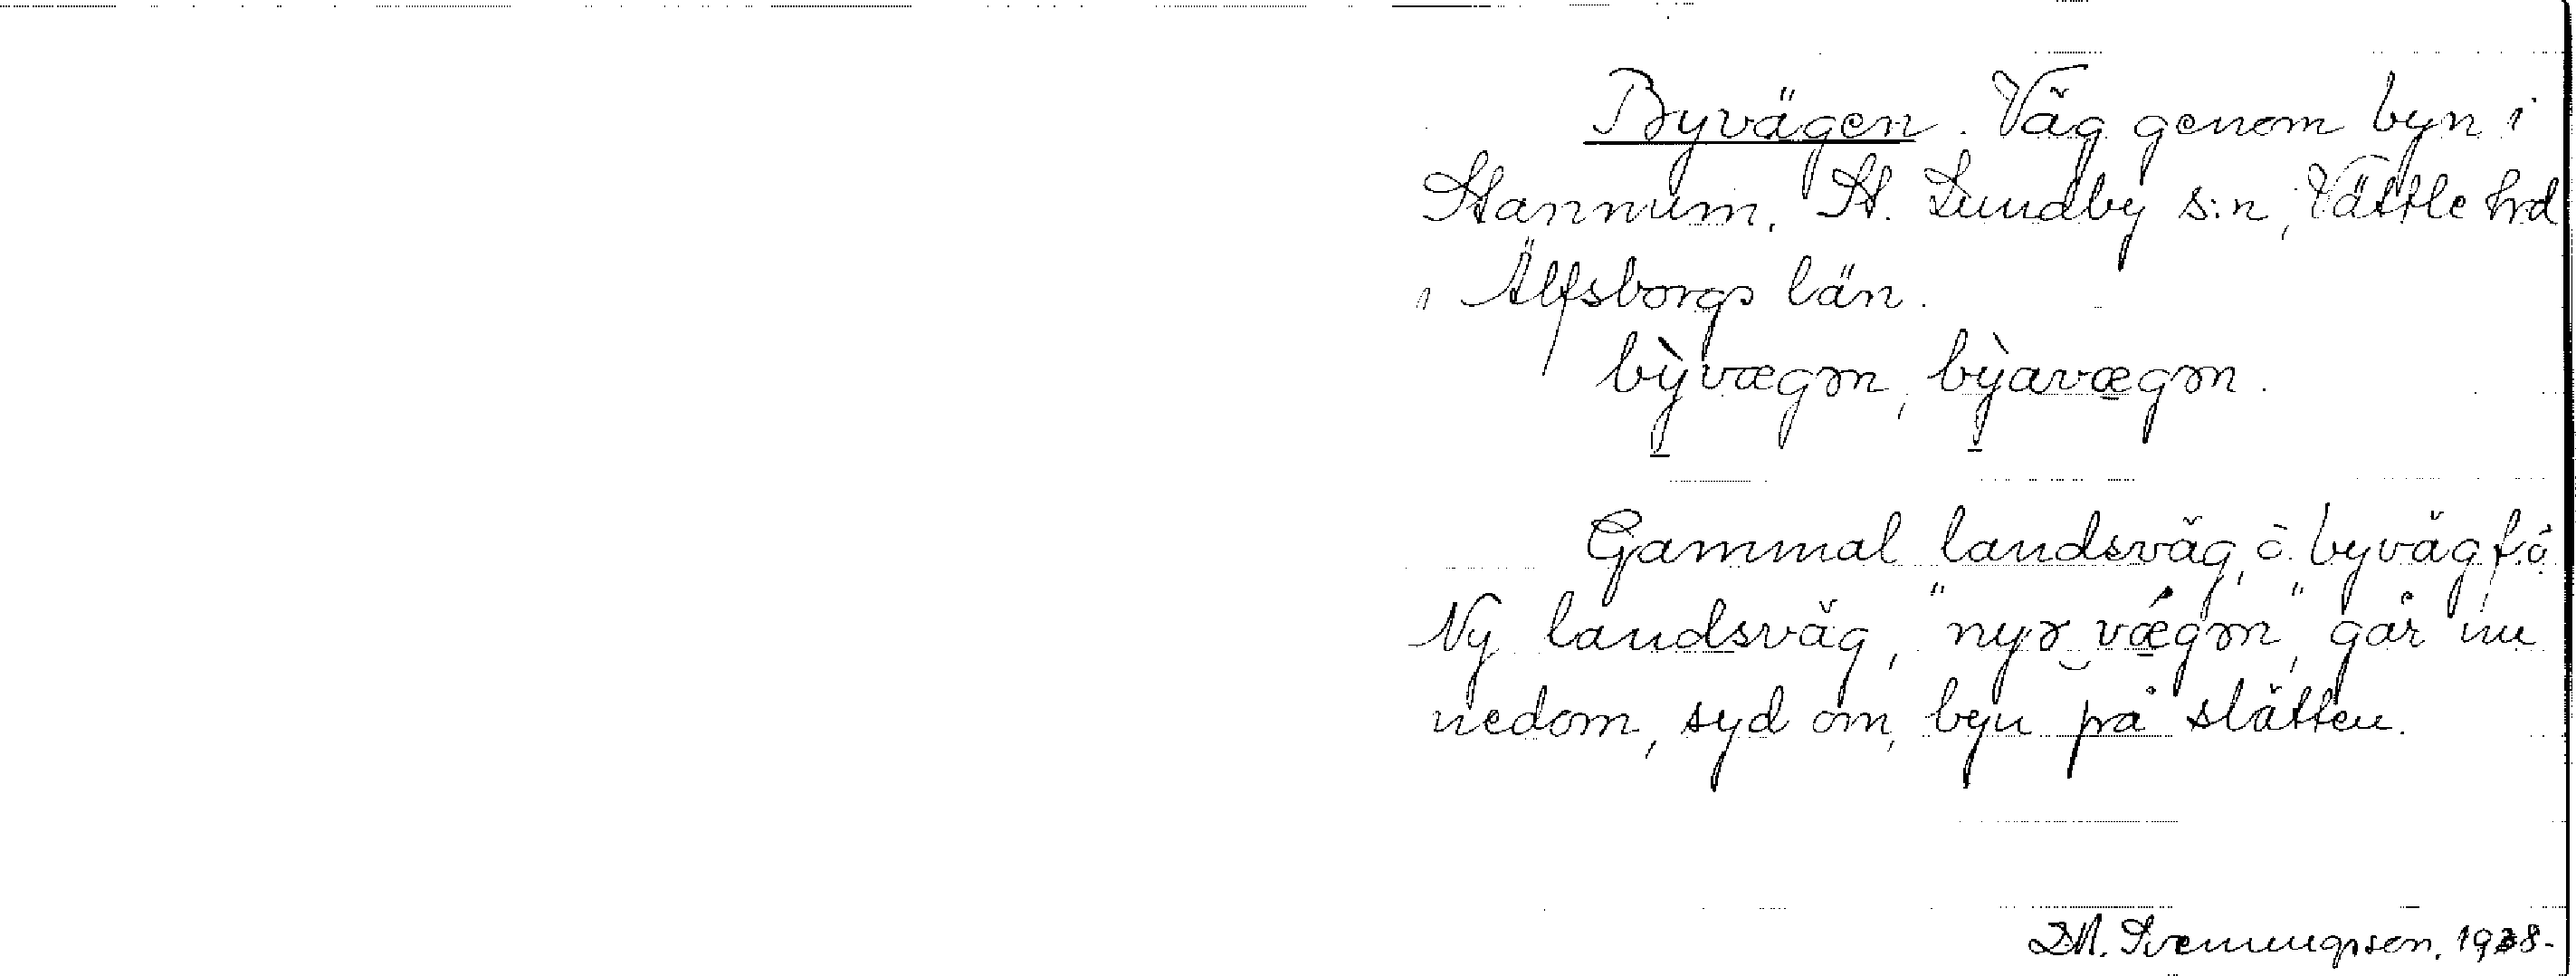 Byvägen. Väg genom byn i
Stannum, St. Lundby s:n, Vättle hrd
i Älfsborgs län.
bỳvægən, bỳavægən.
Gammal landsväg, o. byväg f.ö.
Ny landsväg, "nyə vǽgən", går nu
nedom, syd om, byn på slätten.
Svenungsson. 1938-